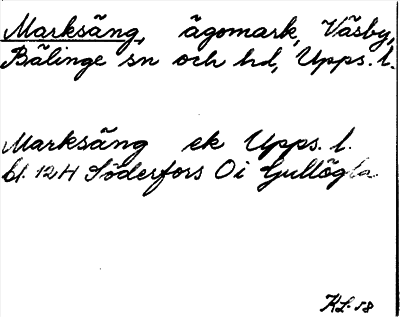 Marksäng, ägomark, Väsby,
Bälinge sn och hd, Upps. l.
Marksäng ek Upps. l.
bl. 12H Söderfors Oi Gullögla
KL-58